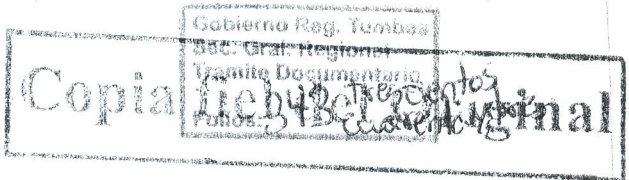 Gobierno Reg. Tumbes
Sec. Gral. Regional
Tramite Documentario
Copia fiel del Original
Folios 343 Trescientos
Cuarenta y